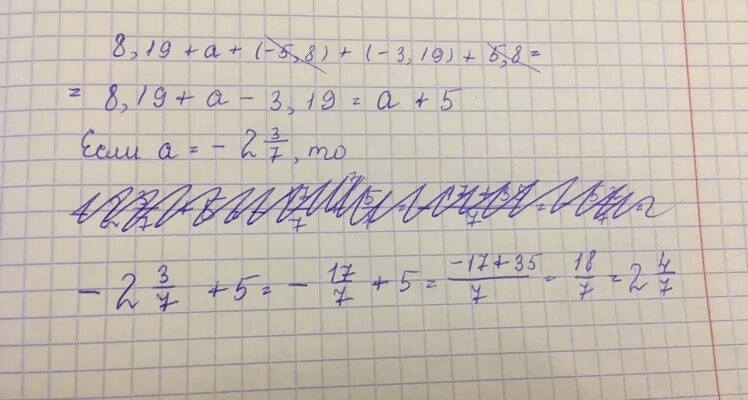 8,19 + a + (-5,8) + (-3,19) + 5,8 =
= 8,19 + a - 3,19 = a + 5
Если a = - 2 3/7, то
- 2 3/7 + 5 = - 17/7 + 5 = (-17+35)/7 = 18/7 = 2 4/7